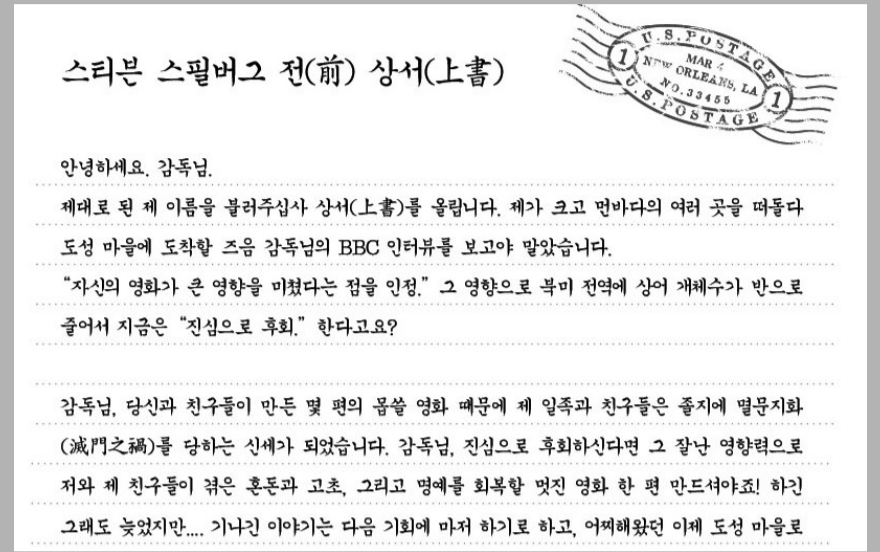 스티븐 스필버그 전(前) 상서(上書)
U.S.POSTAGE
1
MAR 4
NEW ORLEANS, LA
NO.33455
1
U.S.POSTAGE
안녕하세요. 감독님.
제대로 된 제 이름을 불러주십사 상서(上書)를 올립니다. 제가 크고 먼바다의 여러 곳을 떠돌다
도성 마을에 도착할 즈음 감독님의 BBC 인터뷰를 보고야 말았습니다.
“자신의 영화가 큰 영향을 미쳤다는 점을 인정.” 그 영향으로 북미 전역에 상어 개체수가 반으로
줄어서 지금은 “진심으로 후회.” 한다고요?
감독님, 당신과 친구들이 만든 몇 편의 몹쓸 영화 때문에 제 일족과 친구들은 졸지에 멸문지화
(滅門之禍)를 당하는 신세가 되었습니다. 감독님, 진심으로 후회하신다면 그 잘난 영향력으로
저와 제 친구들이 겪은 혼돈과 고초, 그리고 명예를 회복할 멋진 영화 한 편 만드셔야죠! 하긴
그래도 늦었지만.... 기나긴 이야기는 다음 기회에 마저 하기로 하고, 어찌해왔던 이제 도성 마을로